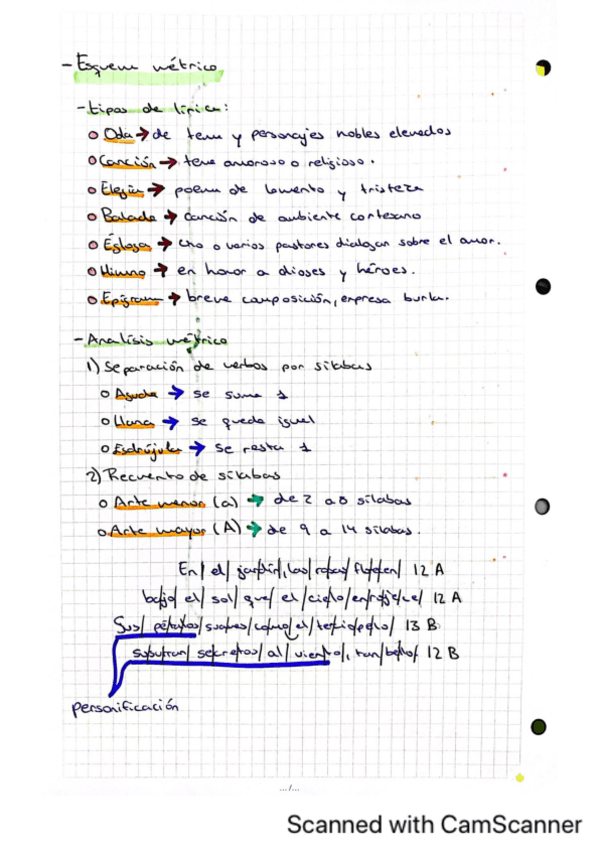 - Esquema métrico
- tipos de lírica:
o Oda → de tema y personajes nobles elevados
o Canción → tema amoroso o religioso.
o Elegía → poema de lamento y tristeza
o Balada → canción de ambiente cortesano
o Égloga → uno o varios pastores dialogan sobre el amor.
o Himno → en honor a dioses y héroes.
o Epigrama → breve composición, expresa burla.
- Analísis métrico
1) Separación de verbos por sílabas
o Aguda → se suma 1
o Llana → se queda igual
o Esdrújula → se resta 1
2) Recuento de sílabas
o Arte menor (a) → de 2 a 8 sílabas
o Arte mayor (A) → de 9 a 14 sílabas.
En/ el/ jar/dín/, las/ ro/sas/ flo/re/cen/ 12 A
ba/jo/ el/ sol/ que/ el/ cie/lo/ en/ro/je/ce/ 12 A
Sus/ pé/ta/los/ sua/ves/ co/mo/ el/ ter/cio/pe/lo/ 13 B
su/su/rran/ se/cre/tos/ al/ vien/to/, tan/ be/llo/ 12 B
personificación
.../...
Scanned with CamScanner